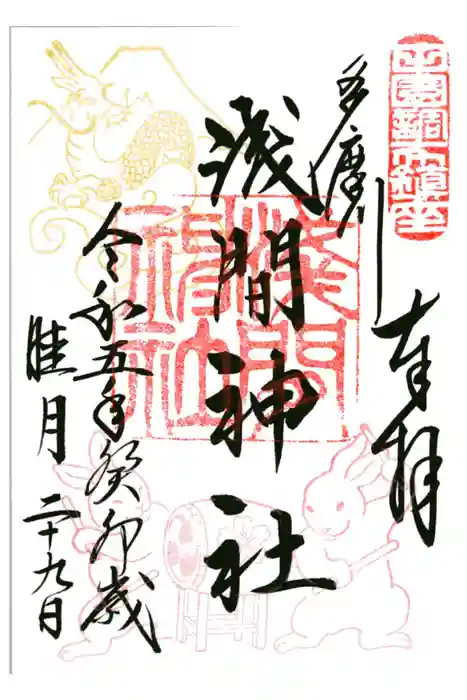 奉拝
多摩川
浅間神社
令和五年癸卯歳
睦月 二十九日
浅間神社